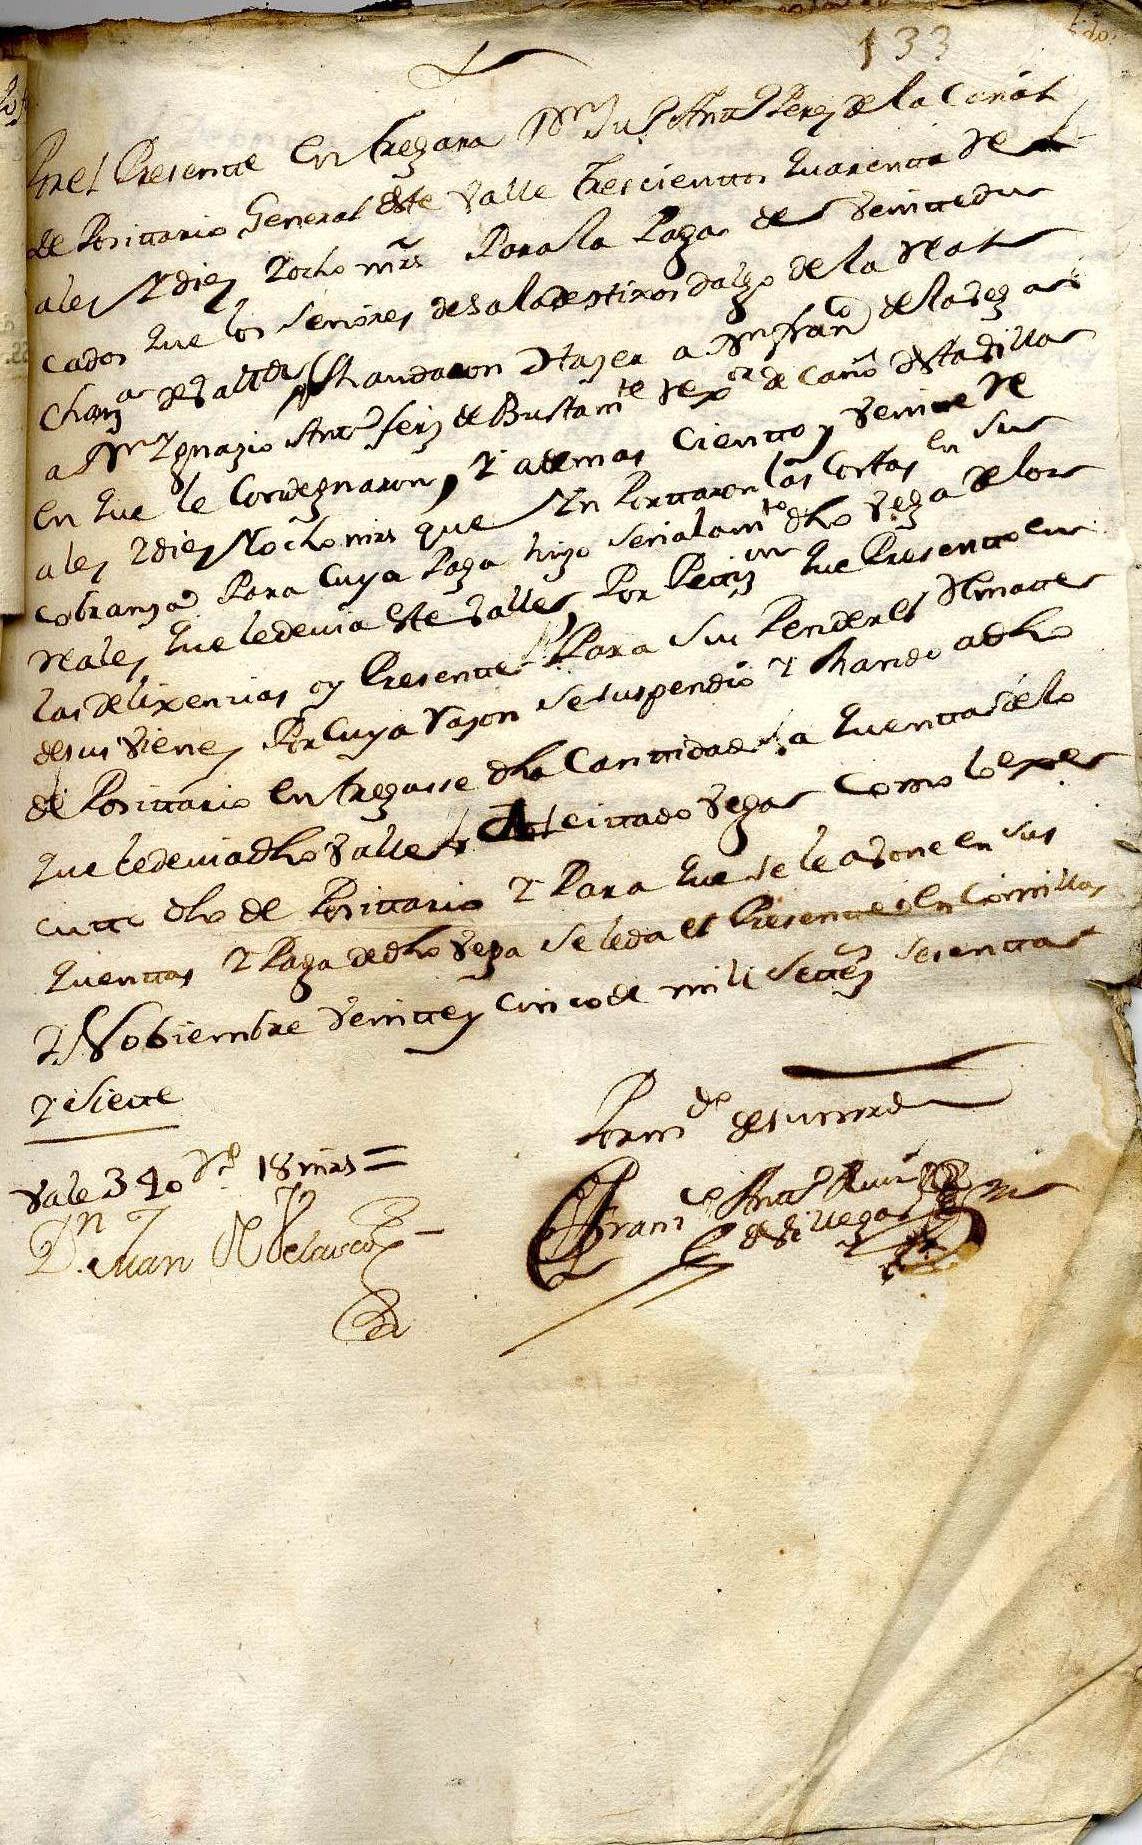 133
Por el Presente entregara Dn Ju. Antº Perez de la Canal
de Posittario General deste Valle trescienttos quarentta Re
ales y diez y ocho mrs Para la Paga de veinttedu
cados que los señores de sala de hixos dalgo de la Real
Chanz.a de Vall.d Mandaron Hazer a Dn Franco de la Vega
a Dn Ygnazio Antº frz de Bustamte en que le
en que le Condegnaron, y ademas ciento y veinte Re
ales y diez y ocho mrs que Ymporttaron las Costas en su
cobranza Para cuya Paga hizo señalamto dho Vega de los
Reales que le devia este Valle, Por Pettizon que Presentto en
las delixencias oy Presente Para suspender el Remate
de sus vienes Por cuya rason se suspendio y Mando a dho
de Posittario entregasse dha Canttidad a quentta de lo
que le devia dho Valle al citado Vega como lo exe
cutto dho de Posittario y Para que se le abone en sus
quenttas y Paga de dho Vega se le da el Presente en Comillas
y Nobiembre veintte y cinco de mill settez sesentta
y Siette
Por mdo de su mrd
Vale 340 Rs 18 mrs =
Franco Antº Ruiz
de Villegas
Dn Juan de Velasco